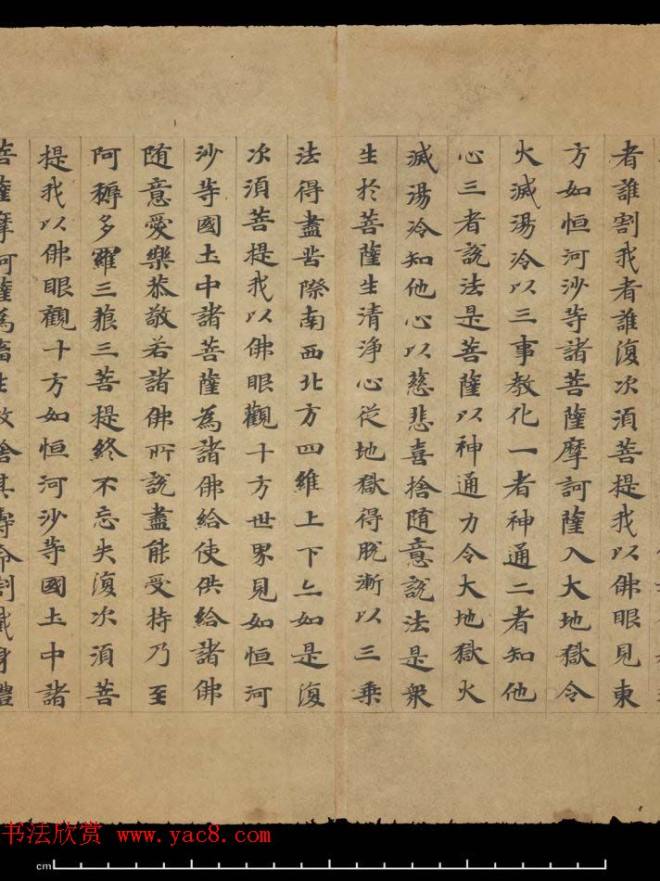 者誰割我者誰復次須菩提我以佛眼見東
方如恒河沙等諸菩薩摩訶薩入大地獄令
火滅湯冷以三事教化一者神通二者知他
心三者說法是菩薩以神通力令大地獄火
滅湯冷知他心以慈悲喜捨随意說法是衆
生於菩薩生清淨心從地獄得脫漸以三乗
法得盡苦際南西北方四維上下亦如是復
次須菩提我以佛眼觀十方世界見如恒河
沙等國土中諸菩薩為諸佛給使供給諸佛
随意愛樂恭敬若諸佛所說盡能受持乃至
阿耨多羅三藐三菩提終不忘失復次須菩
提我以佛眼觀十方如恒河沙等國土中諸
菩薩摩訶薩為畜生故捨其壽命割截身體
书法欣赏 www.yac8.com
cm